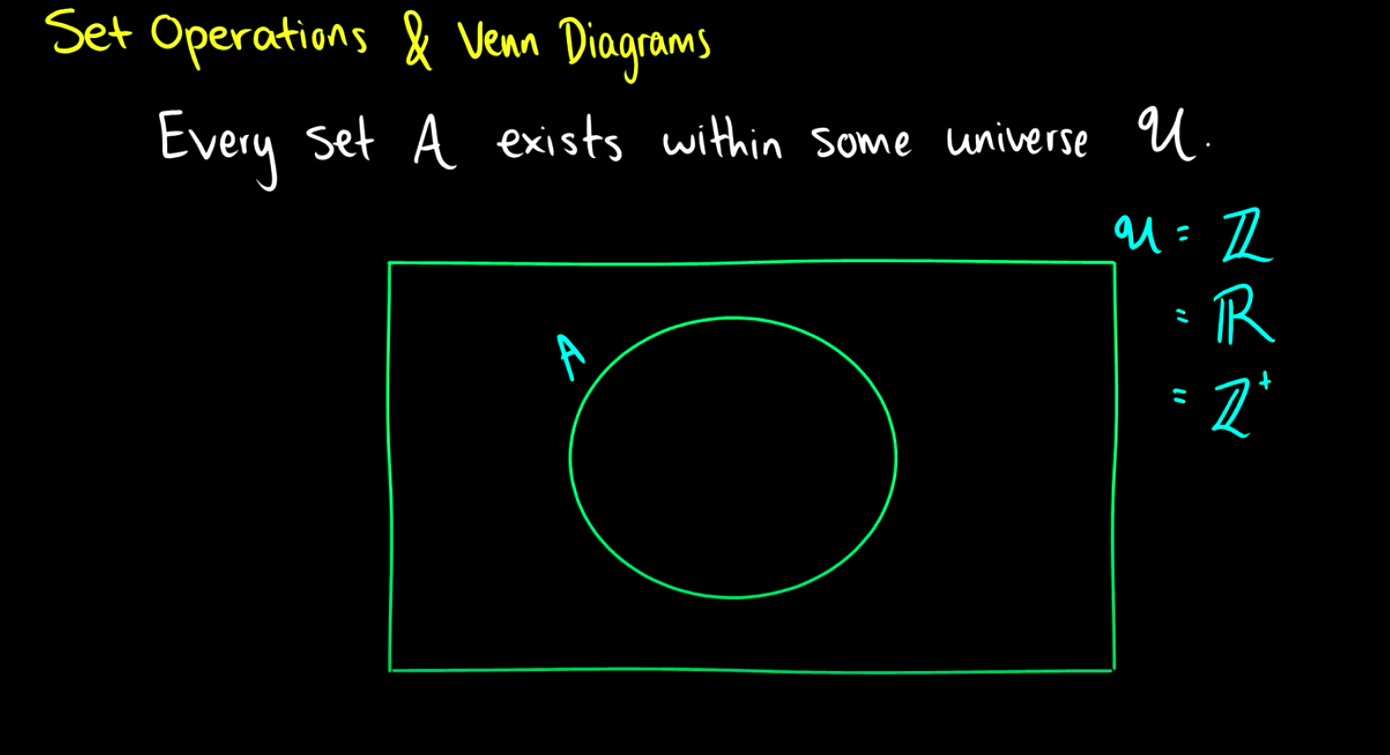 Set Operations & Venn Diagrams
Every set A exists within some universe 𝒰.
𝒰 = ℤ
= ℝ
= ℤ⁺
A